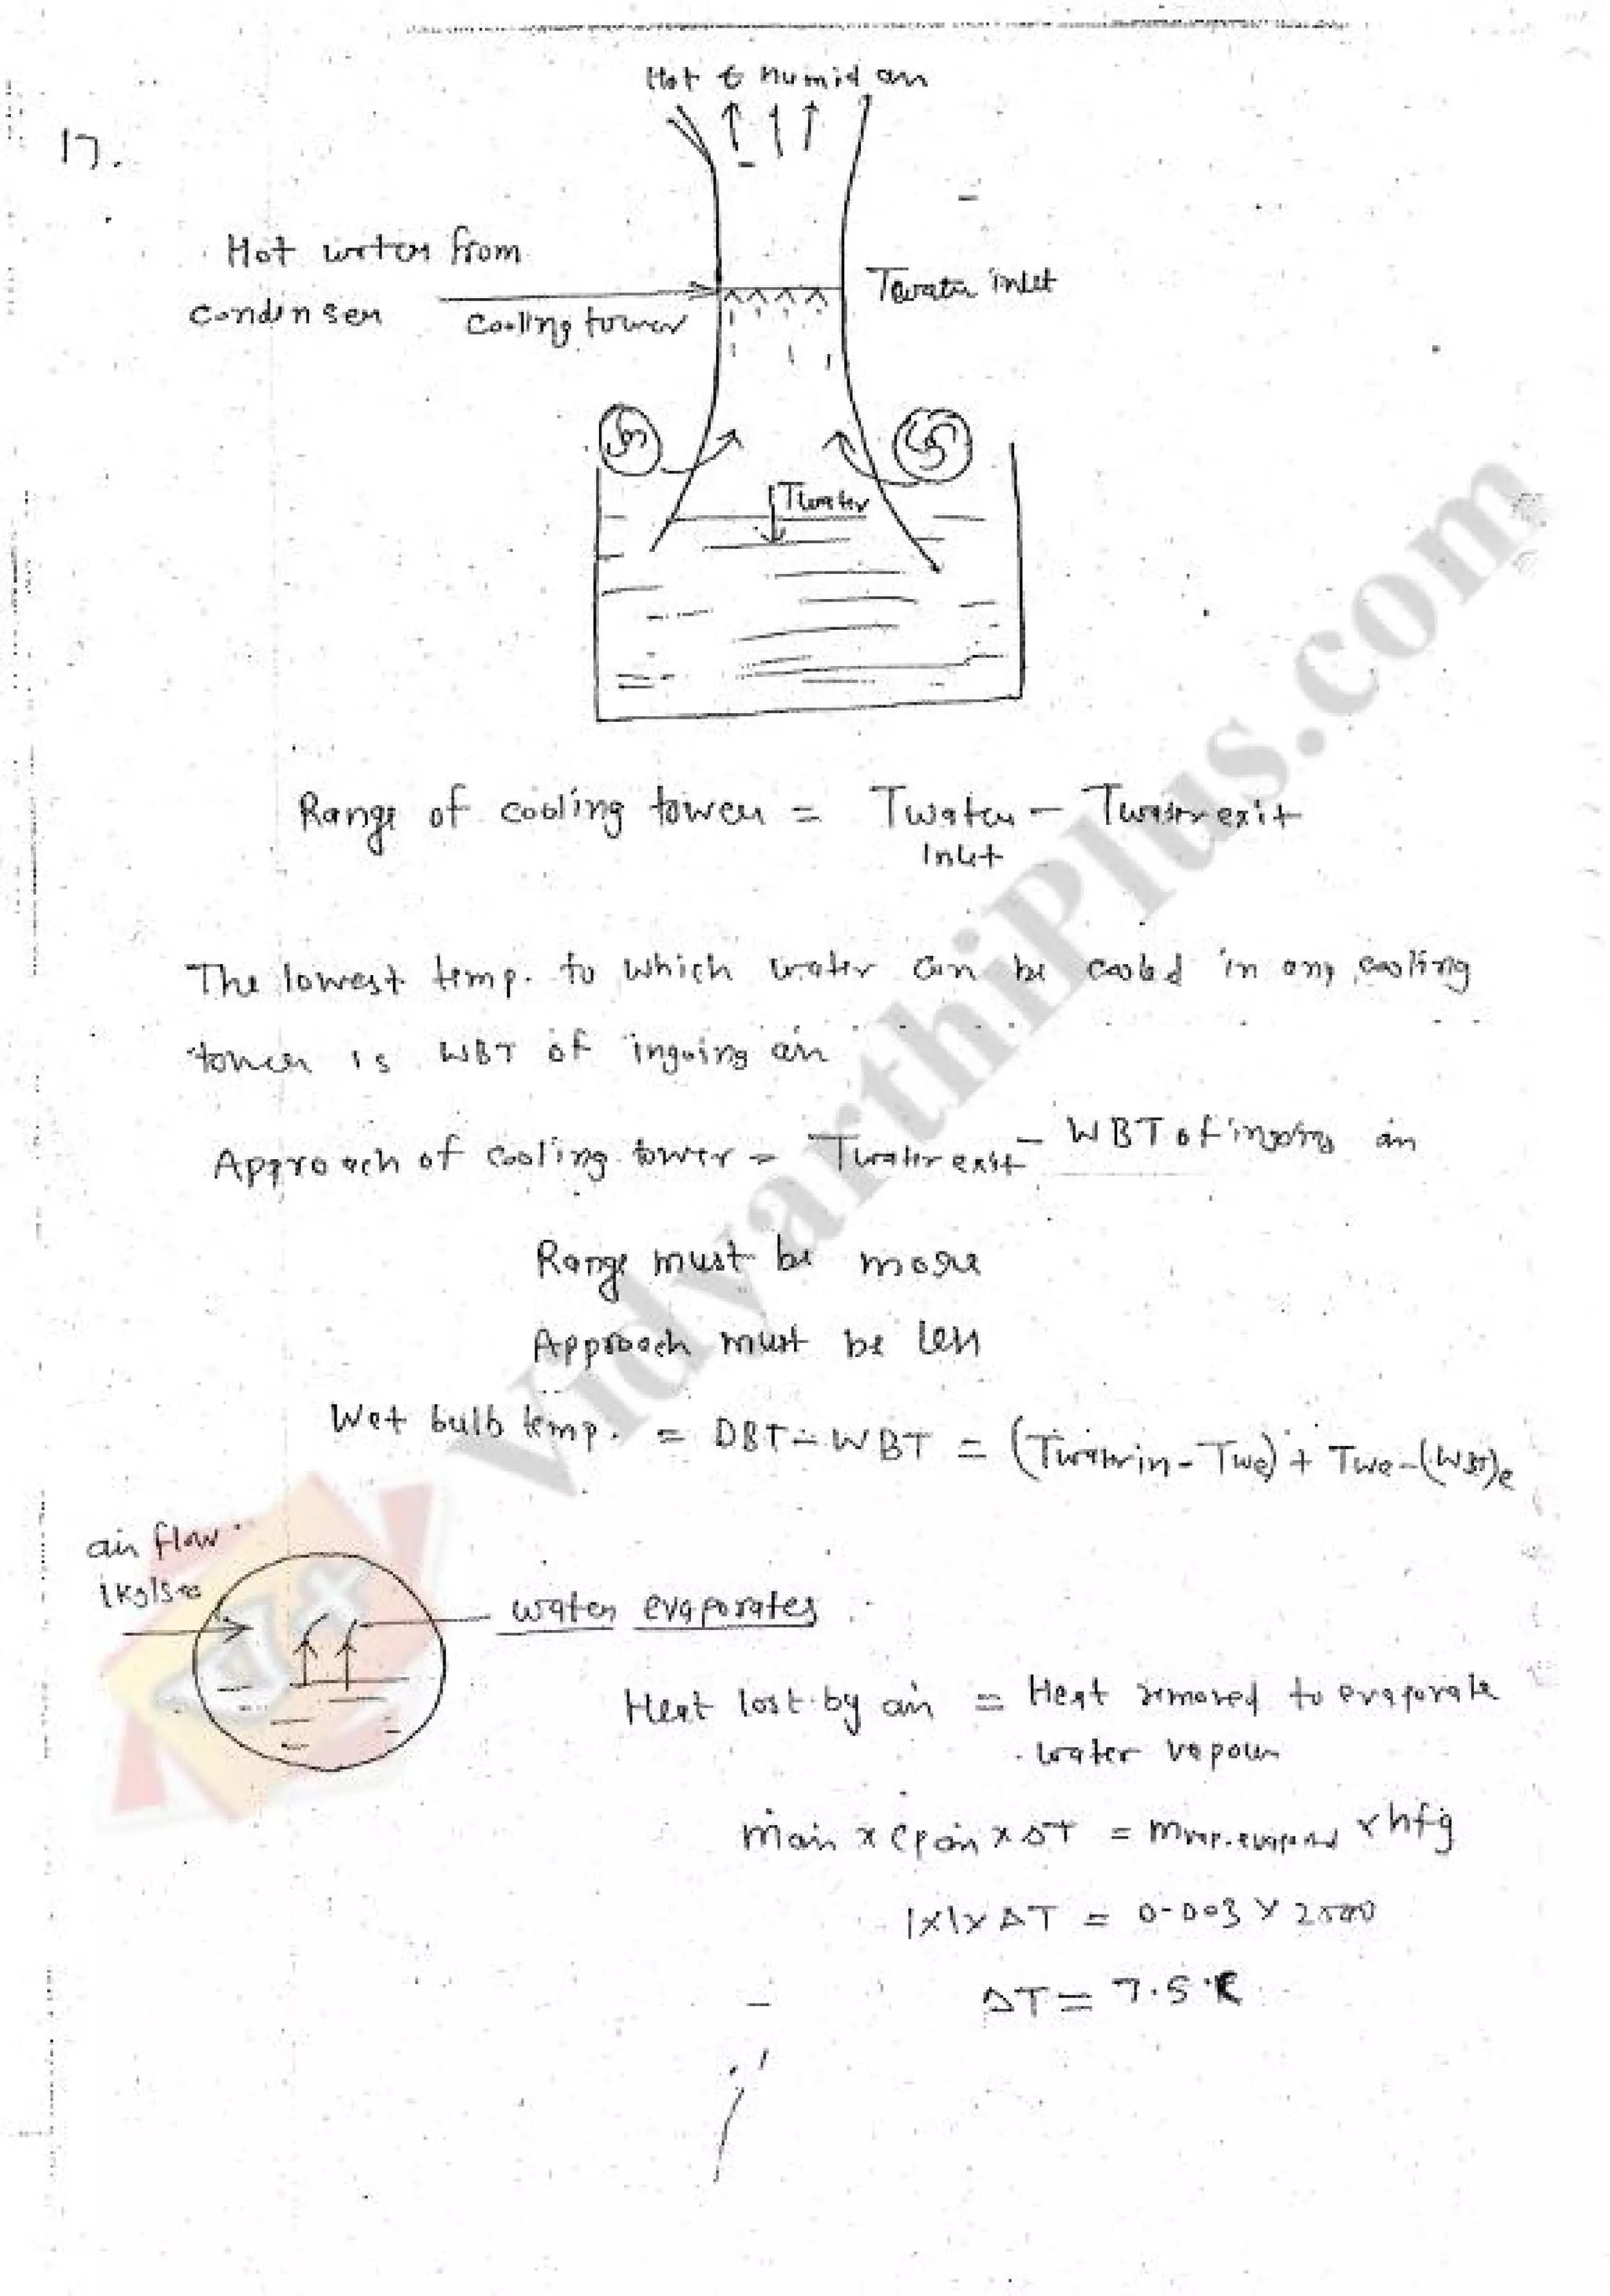 Hot & Humid air
17.
Hot water from
condenser
Cooling tower
Twater inlet
Twater
Range of cooling tower = Twater inlet - Twater exit
The lowest temp. to which water can be cooled in any cooling
tower is WBT of ingoing air
Approach of cooling tower = Twater exit - WBT of ingoing air
Range must be more
Approach must be less
Wet bulb temp. = DBT - WBT = (Twater in - Twe) + Twe - (WBT)e
air flow
1kg/sec
water evaporates
Heat lost by air = Heat removed to evaporate
water vapour
ṁair x Cp air x ΔT = mvap. evaporated x hfg
1x1x ΔT = 0.003 x 2500
ΔT = 7.5°K
VidyarthiPlus.com
V+